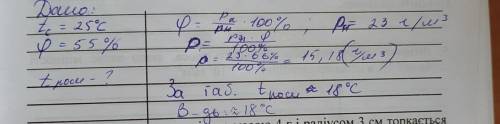 Дано:
t_c = 25°C
φ = 55%
t роси - ?
φ = Pa/Pн · 100% ; Pн = 23 г/м³
P = Pн · φ / 100%
ρ = 23 · 66% / 100% = 15,18 (г/м³)
За таб. t роси ≈ 18°C
В-дь: ≈ 18°C
4 г і радіусом 3 см торкається